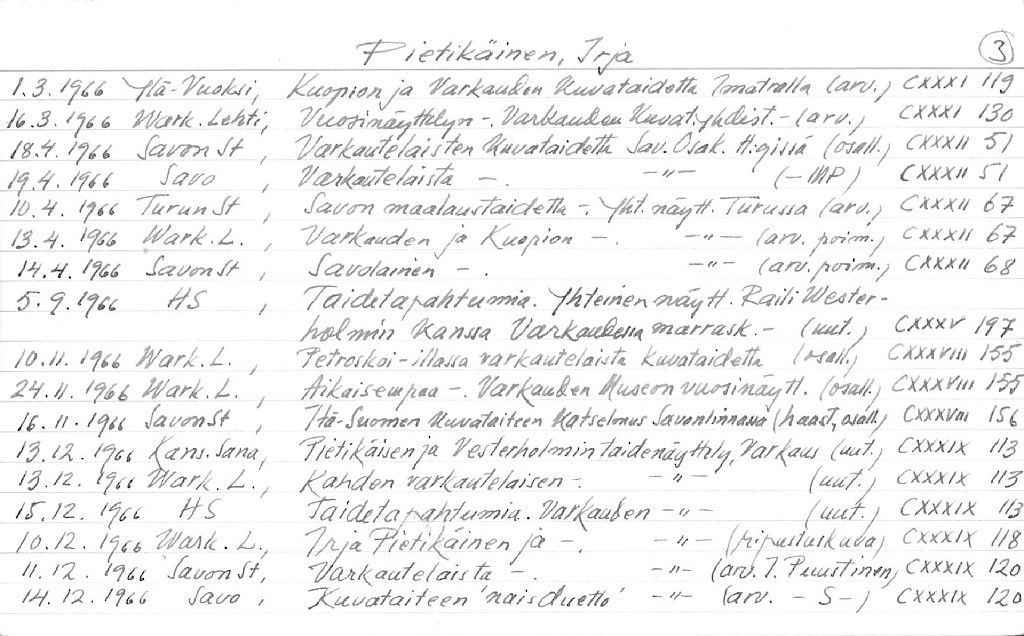 Pietikäinen, Irja 3
1.3.1966 Ylä-Vuoksi, Kuopion ja Varkauden kuvataidetta Imatralla (arv.) CXXXI 119
16.3.1966 Wark. Lehti, Vuosinäyttelyn -. Varkauden Kuvat.yhdist. - (arv.) CXXXI 130
18.4.1966 Savon St, Varkautelaisten kuvataidetta Sav. Osak. H:gissä (osall.) CXXXII 51
19.4.1966 Savo, Varkautelaista -. -"- (-MP) CXXXII 51
10.4.1966 Turun St, Savon maalaustaidetta -. Yht. näytt. Turussa (arv.) CXXXII 67
13.4.1966 Wark. L., Varkauden ja Kuopion -. -"- (arv. poim.) CXXXII 67
14.4.1966 Savon St, Savolainen -. -"- (arv. poim.) CXXXII 68
5.9.1966 HS, Taidetapahtumia. Yhteinen näytt. Raili Wester-
holmin kanssa Varkaudessa marrask. - (uut.) CXXXV 197
10.11.1966 Wark. L., Petroskoi-illassa varkautelaista kuvataidetta (osall.) CXXXVIII 155
24.11.1966 Wark. L., Aikaisempaa -. Varkauden Museon vuosinäytt. (osall.) CXXXVIII 155
16.11.1966 Savon St, Itä-Suomen kuvataiteen katselmus Savonlinnassa (haast, osall.) CXXXVIII 156
13.12.1966 Kans. Sana, Pietikäisen ja Vesterholmin taidenäyttely, Varkaus (uut.) CXXXIX 113
13.12.1966 Wark. L., Kahden varkautelaisen -. -"- (uut.) CXXXIX 113
15.12.1966 HS, Taidetapahtumia. Varkauden -"- (uut.) CXXXIX 113
10.12.1966 Wark. L., Irja Pietikäinen ja -. -"- (ripustuskuva) CXXXIX 118
11.12.1966 Savon St, Varkautelaista -. -"- (arv. I. Puustinen) CXXXIX 120
14.12.1966 Savo, Kuvataiteen 'naisduetto' -"- (arv. -S-) CXXXIX 120